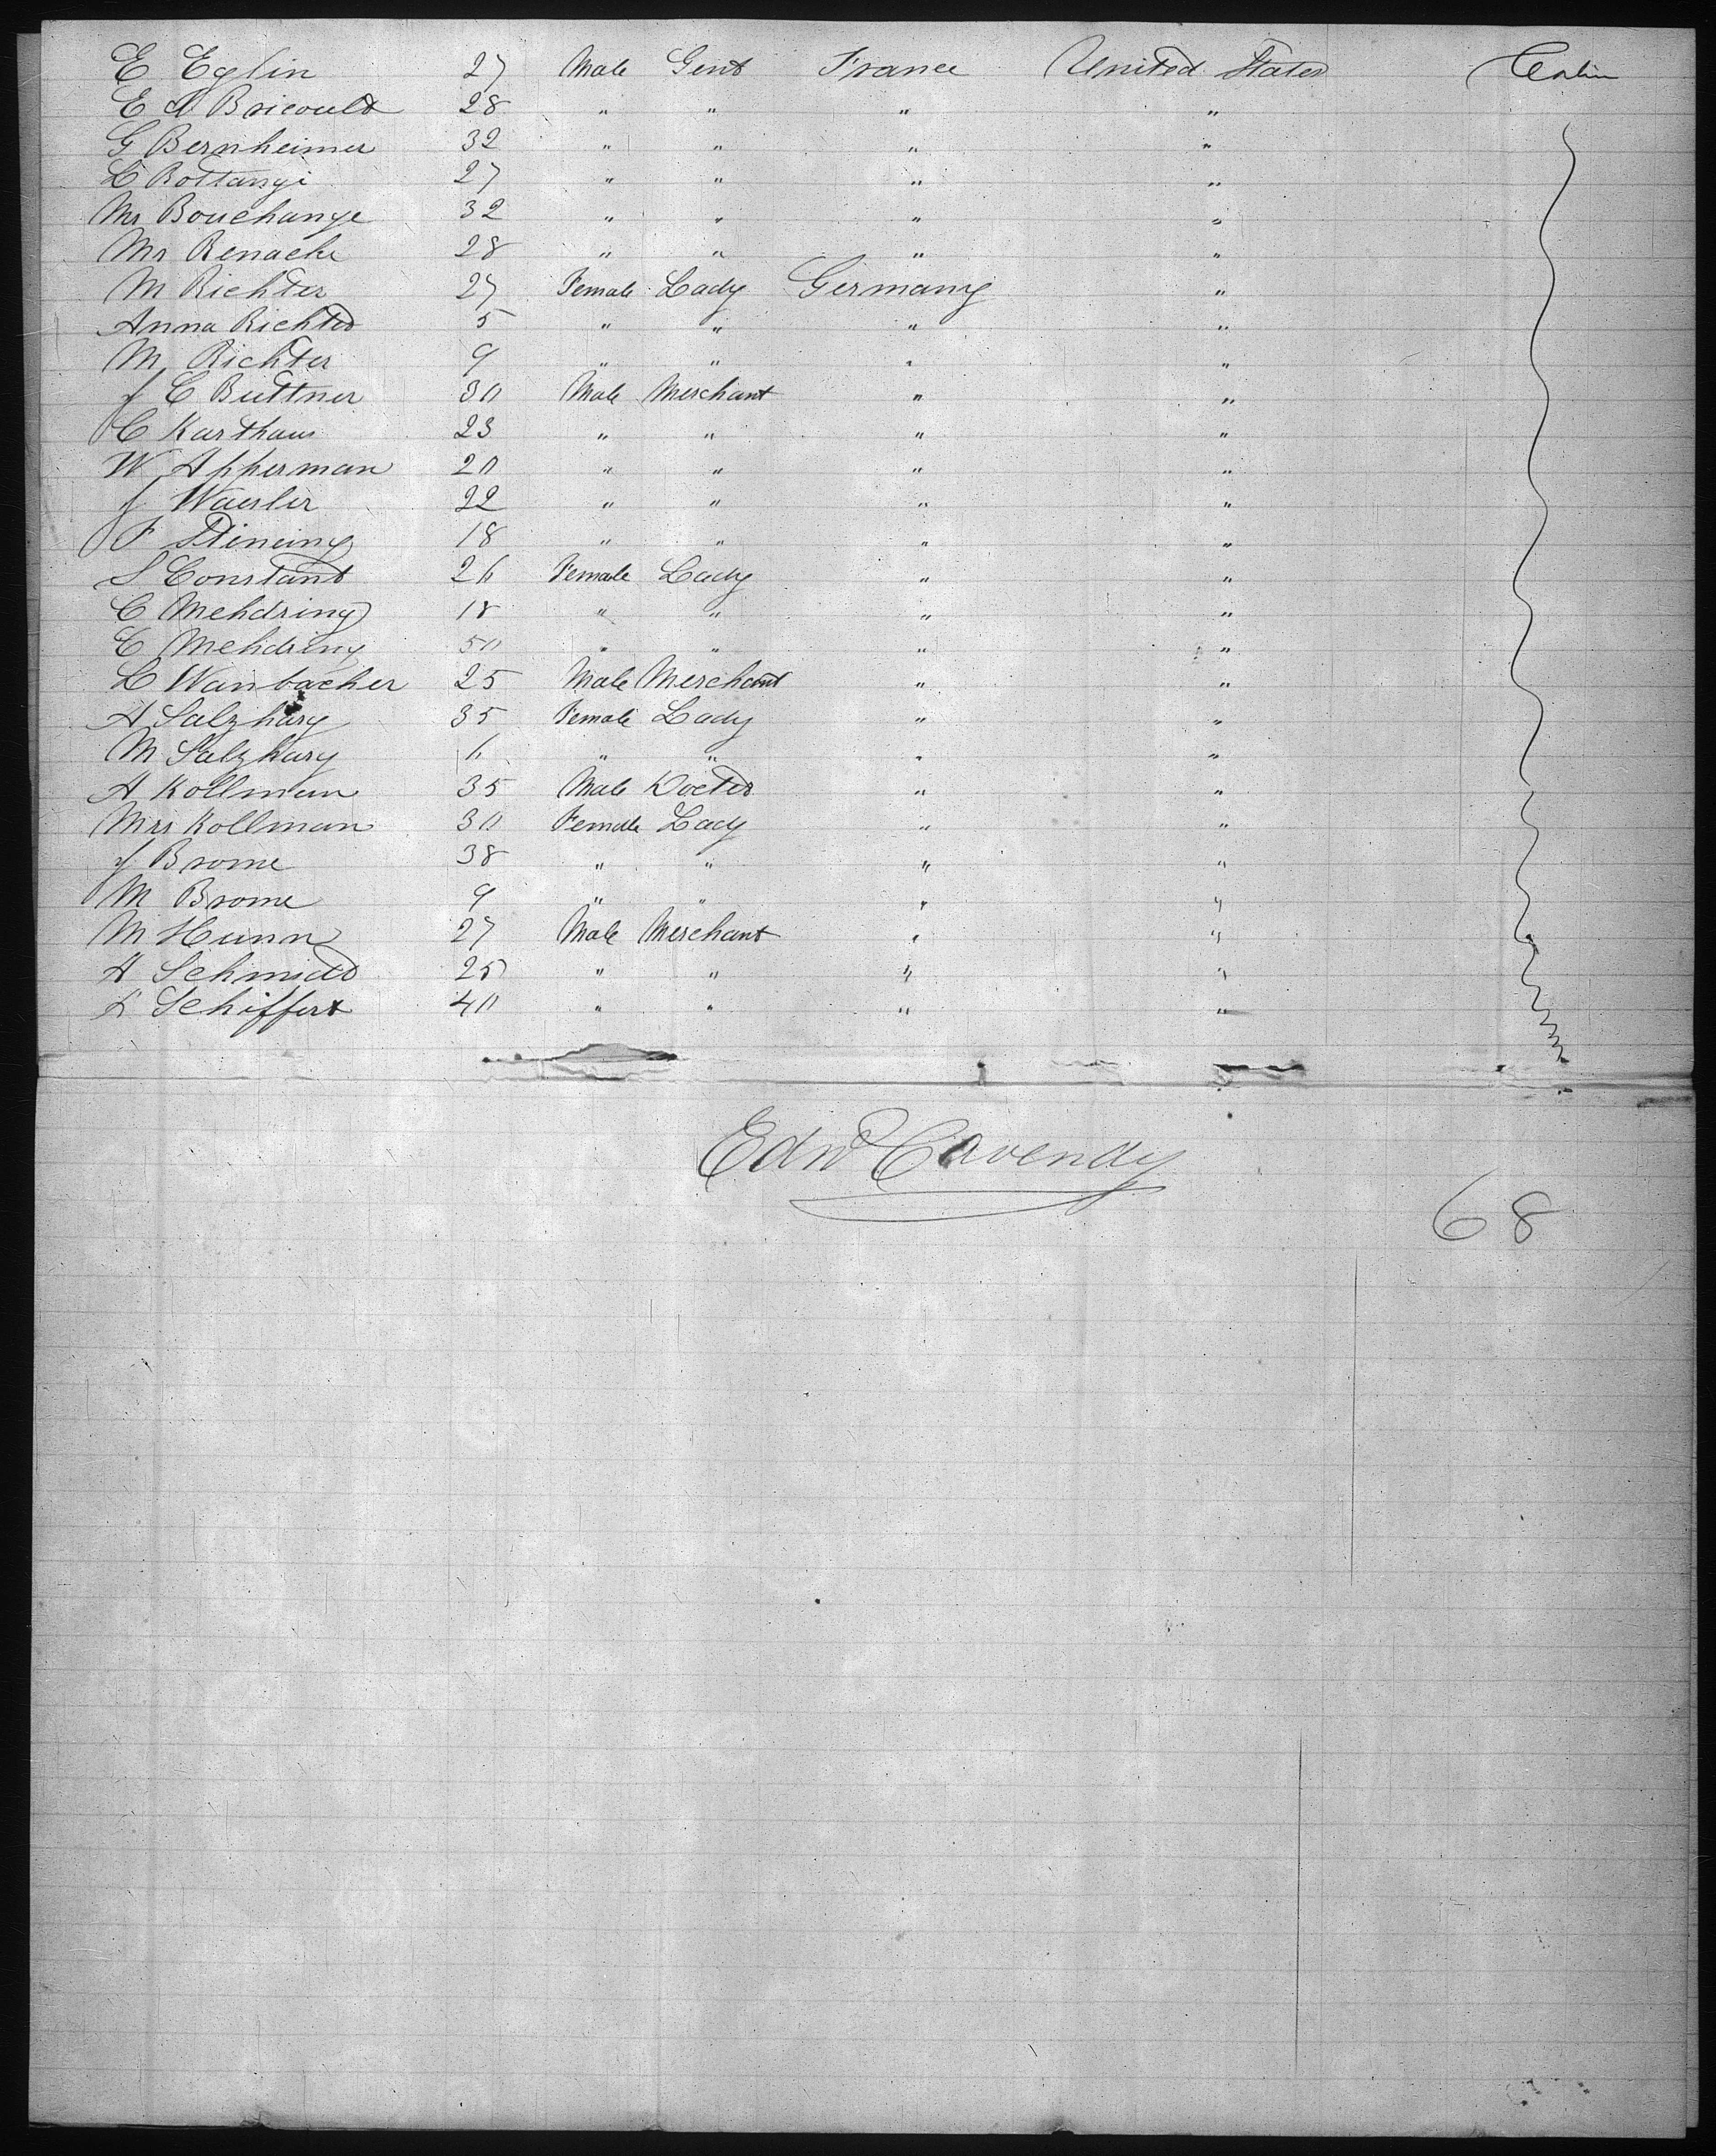 E Eglin 27 Male Gent France United States Cabin
E A Bricoult 28 " " " "
G Bernheimer 32 " " " "
L Bottangi 27 " " " "
Mr Bouchange 32 " " " "
Mr Renache 28 " " " "
M Richter 27 Female Lady Germany "
Anna Richter 5 " " " "
M Richter 9 " " " "
J C Buttner 30 Male Merchant " "
C Karthaus 23 " " " "
W Apperman 20 " " " "
J Waesler 22 " " " "
F Stineing 18 " " " "
S Constant 26 Female Lady " "
C Mehdring 18 " " " "
C Mehdring 50 " " " "
L Wanbacher 25 Male Merchant " "
A Salzhary 35 Female Lady " "
M Salzhary 6 " " " "
A Kollman 35 Male Doctor " "
Mrs Kollman 30 Female Lady " "
J Brome 38 " " " "
M Brome 9 " " " "
M Hunn 27 Male Merchant " "
A Schmidt 25 " " " "
L Schiffert 40 " " " "
Edwd Cavendy
68